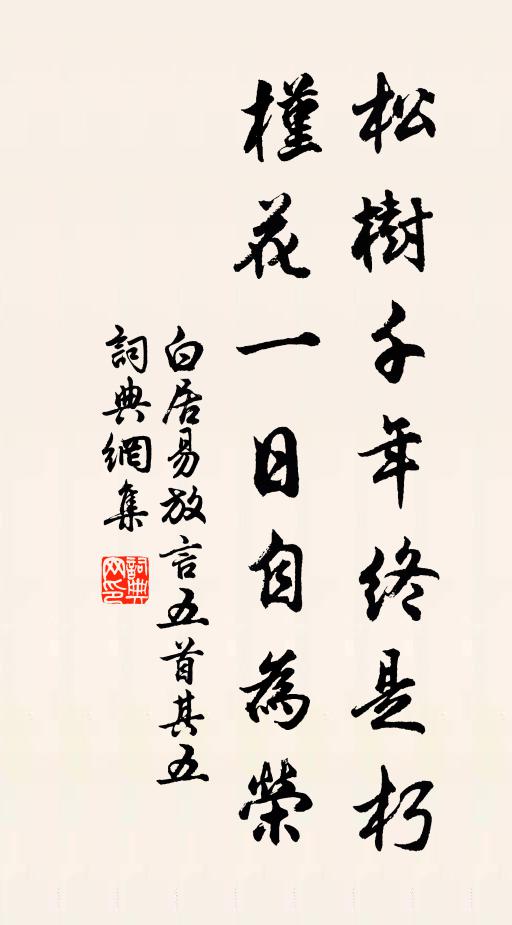 松樹千年終是朽
槿花一日自為榮
白居易放言五首其五
詞典網集
詞典網印